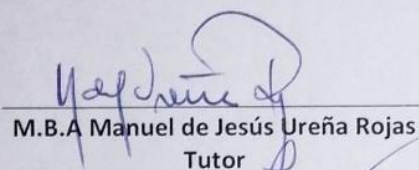 M.B.A Manuel de Jesús Ureña Rojas
Tutor